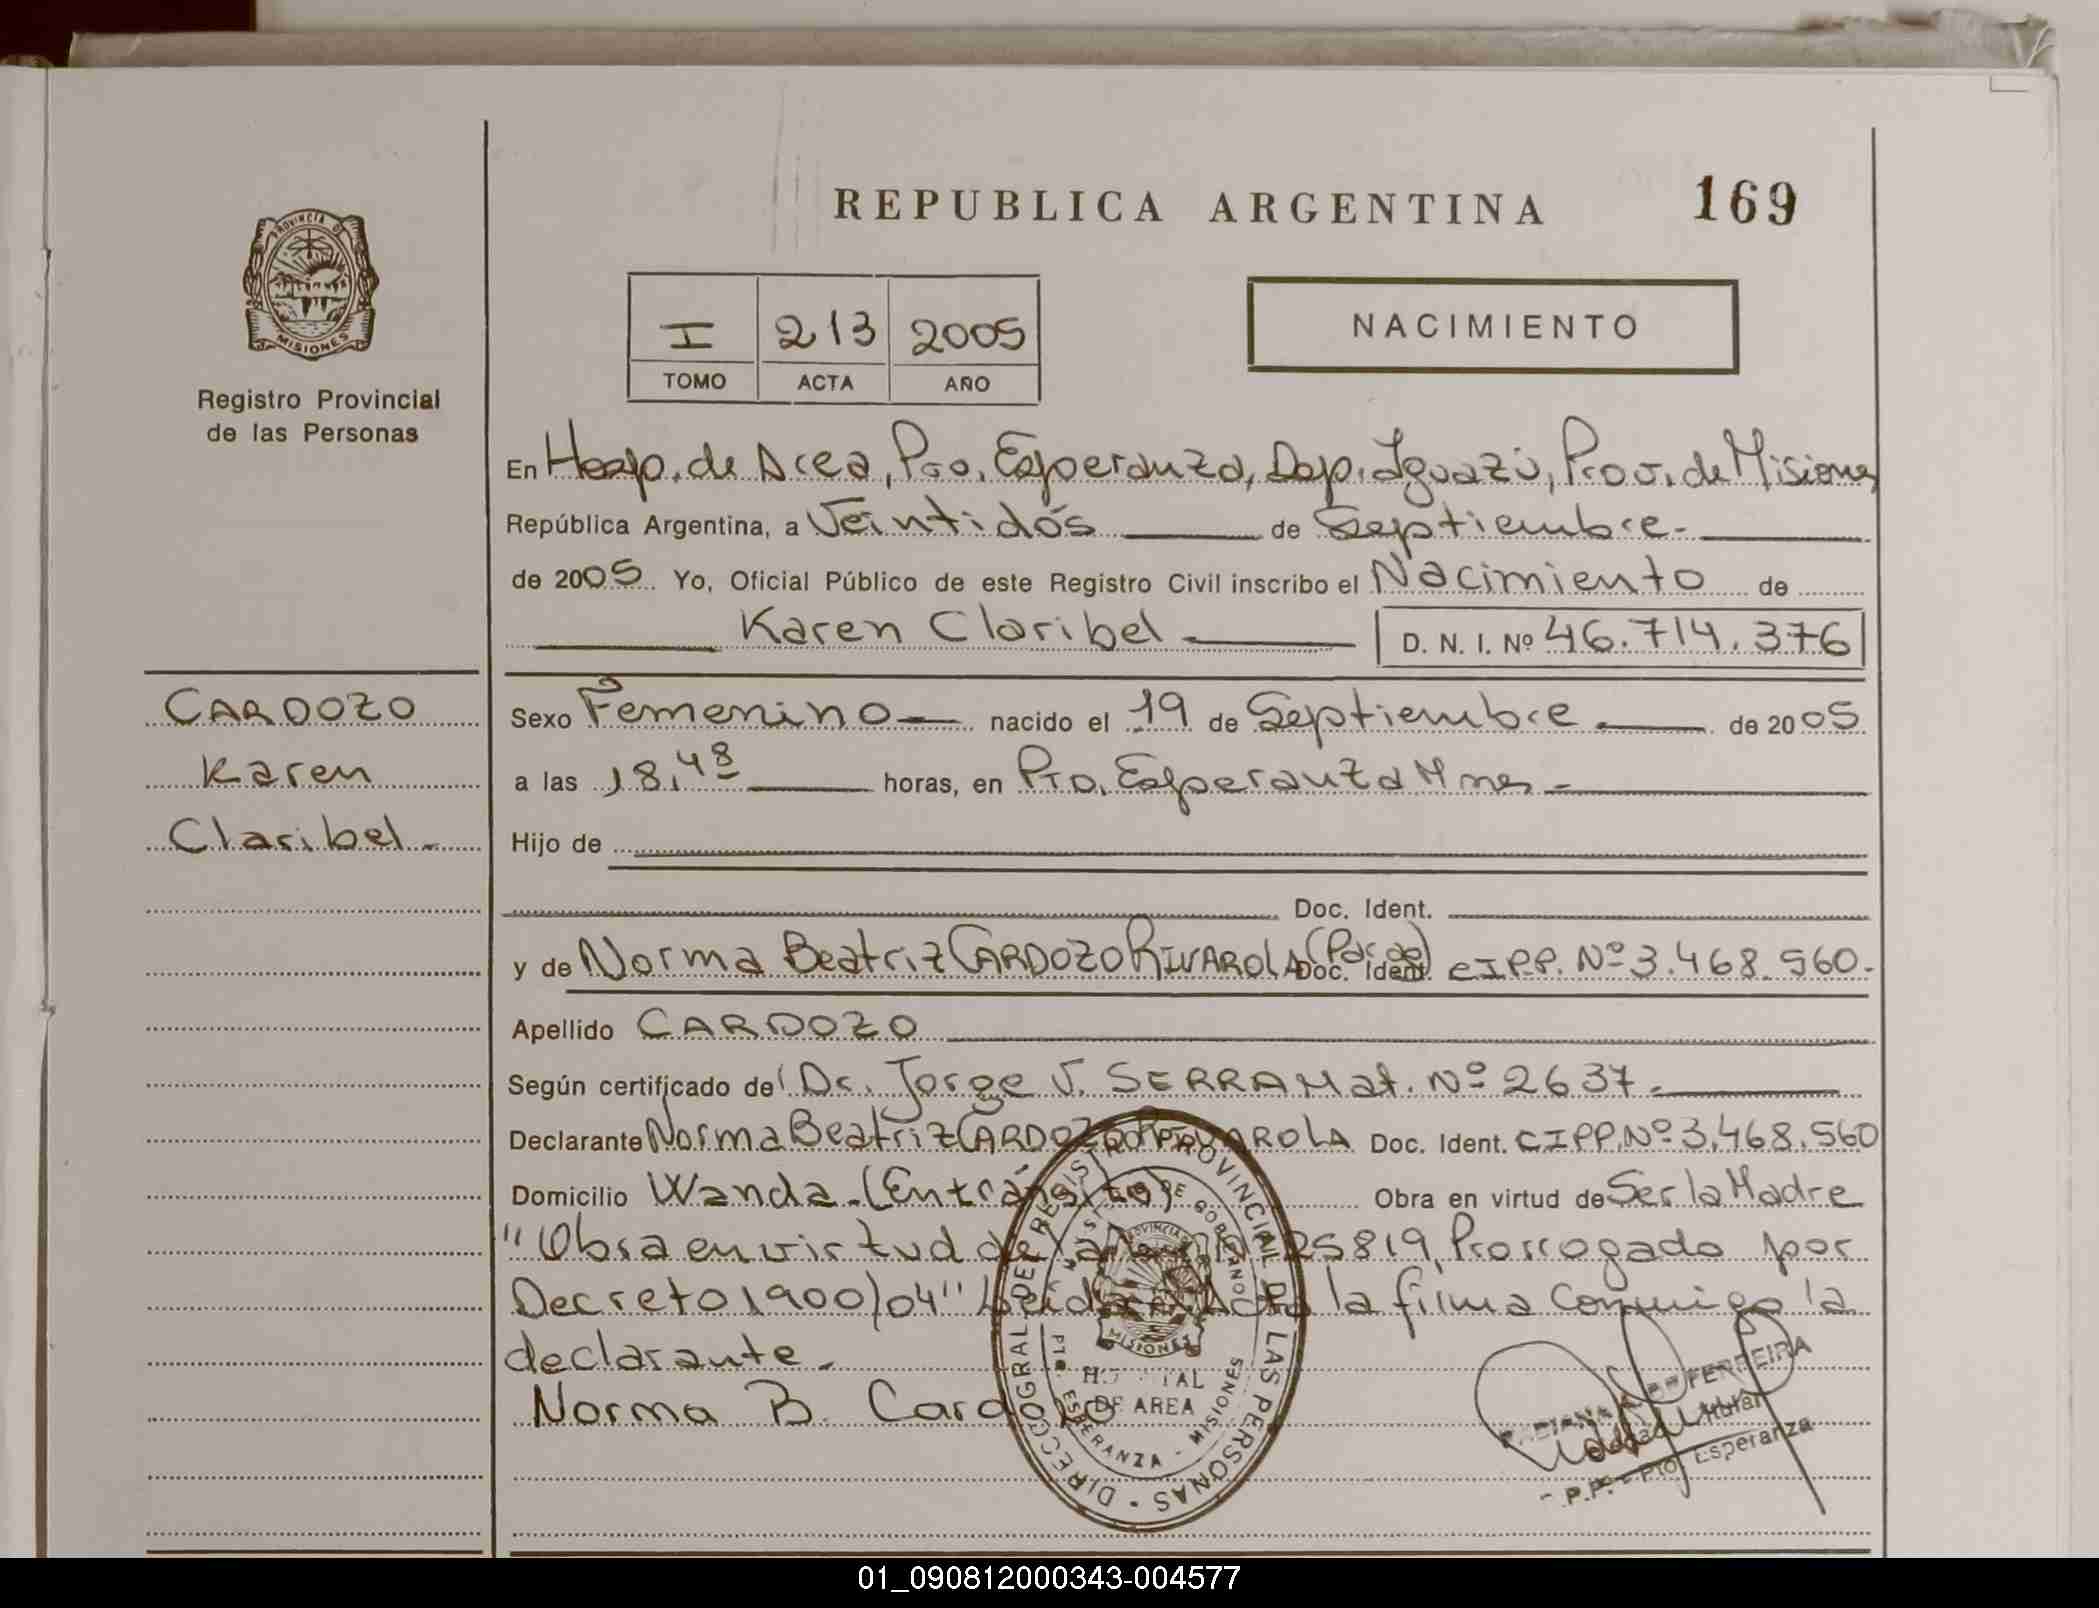 REPUBLICA ARGENTINA 169
PROVINCIA DE MISIONES
Registro Provincial
de las Personas
I 213 2005
TOMO ACTA AÑO
NACIMIENTO
En Hosp. de Area, Pto. Esperanza, Dep. Iguazú, Prov. de Misiones
República Argentina, a Veintidós de Septiembre.
de 2005. Yo, Oficial Público de este Registro Civil inscribo el Nacimiento de
Karen Claribel D. N. I. Nº 46.714.376
CARDOZO
Karen
Claribel.
Sexo Femenino nacido el 19 de Septiembre de 2005
a las 18,48 horas, en Pto. Esperanza Mnes.
Hijo de
Doc. Ident.
y de Norma Beatriz CARDOZO RIVAROLA Doc. Ident. CIP.P. Nº 3.468.560.
Apellido CARDOZO
Según certificado del Dr. Jorge V. SERRA Mat. Nº 2637.
Declarante Norma Beatriz CARDOZO RIVAROLA Doc. Ident. CIPP. Nº 3.468.560
Domicilio Wanda.(En tránsito) Obra en virtud de Ser la Madre
"Obra en virtud de 25819, Prorrogado por
Decreto 1900/04" Acta la firma conmigo la
declarante.
Norma B. Cardozo
DIREC. GRAL. DE REGISTRO PROVINCIAL DE LAS PERSONAS
PROVINCIA MISIONES
DE AREA
ESPERANZA - MISIONES
DE FERREIRA
Titular
P.P. - Pto. Esperanza
01_090812000343-004577